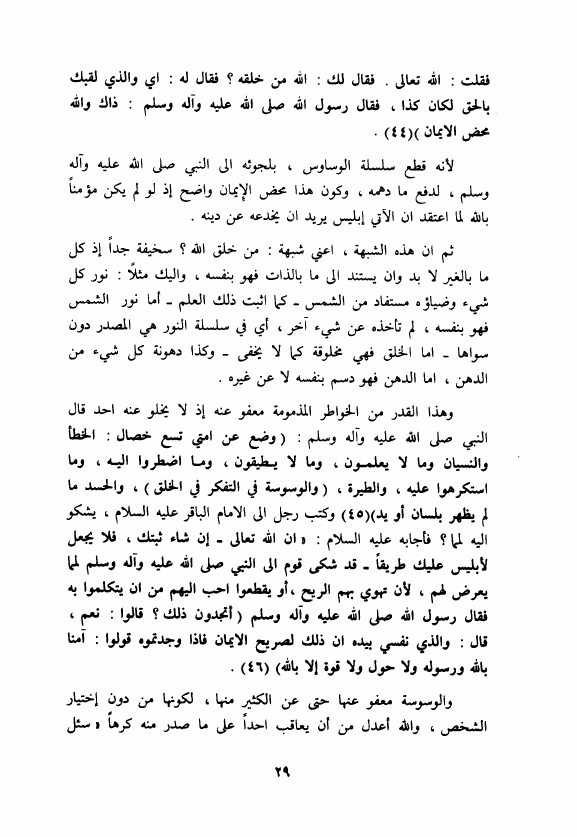 فقلت : الله تعالى . فقال لك : الله من خلقه ؟ فقال له : اي والذي لقبك
بالحق لكان كذا ، فقال رسول الله صلى الله عليه وآله وسلم : ذاك والله
محض الايمان )(٤٤) .
لأنه قطع سلسلة الوساوس ، بلجوئه الى النبي صلى الله عليه وآله
وسلم ، لدفع ما دهمه ، وكون هذا محض الإيمان واضح إذ لو لم يكن مؤمناً
بالله لما اعتقد ان الآتي إبليس يريد ان يخدعه عن دينه .
ثم ان هذه الشبهة ، اعني شبهة : من خلق الله ؟ سخيفة جداً إذ كل
ما بالغير لا بد وان يستند الى ما بالذات فهو بنفسه ، واليك مثلاً : نور كل
شيء وضياؤه مستفاد من الشمس ـ كما اثبت ذلك العلم ـ أما نور الشمس
فهو بنفسه ، لم تأخذه عن شيء آخر ، أي في سلسلة النور هي المصدر دون
سواها ـ اما الخلق فهي مخلوقة كما لا يخفى ـ وكذا دهونة كل شيء من
الدهن ، اما الدهن فهو دسم بنفسه لا عن غيره .
وهذا القدر من الخواطر المذمومة معفو عنه إذ لا يخلو عنه احد قال
النبي صلى الله عليه وآله وسلم : ( وضع عن امتي تسع خصال : الخطأ
والنسيان وما لا يعلمـون ، وما لا يـطيقون ، ومـا اضطروا اليـه ، وما
استكرهوا عليه ، والطيرة ، ( والوسوسة في التفكر في الخلق ) ، والحسد ما
لم يظهر بلسان أو يد)(٤٥) وكتب رجل الى الامام الباقر عليه السلام ، يشكو
اليه لمماً ؟ فأجابه عليه السلام : « ان الله تعالى ـ إن شاء ثبتك ، فلا يجعل
لأبليس عليك طريقاً ـ قد شكى قوم الى النبي صلى الله عليه وآله وسلم لمما
يعرض لهم ، لأن تهوي بهم الريح ،أو يقطعوا احب اليهم من ان يتكلموا به
فقال رسول الله صلى الله عليه وآله وسلم ( أتجدون ذلك ؟ قالوا : نعم ،
قال : والذي نفسي بيده ان ذلك لصريح الايمان فاذا وجدتموه قولوا : آمنا
بالله ورسوله ولا حول ولا قوة إلا بالله) (٤٦) .
والوسوسة معفو عنها حتى عن الكثير منها ، لكونها من دون إختيار
الشخص ، والله أعدل من أن يعاقب احداً على ما صدر منه كرهاً « سئل
٢٩